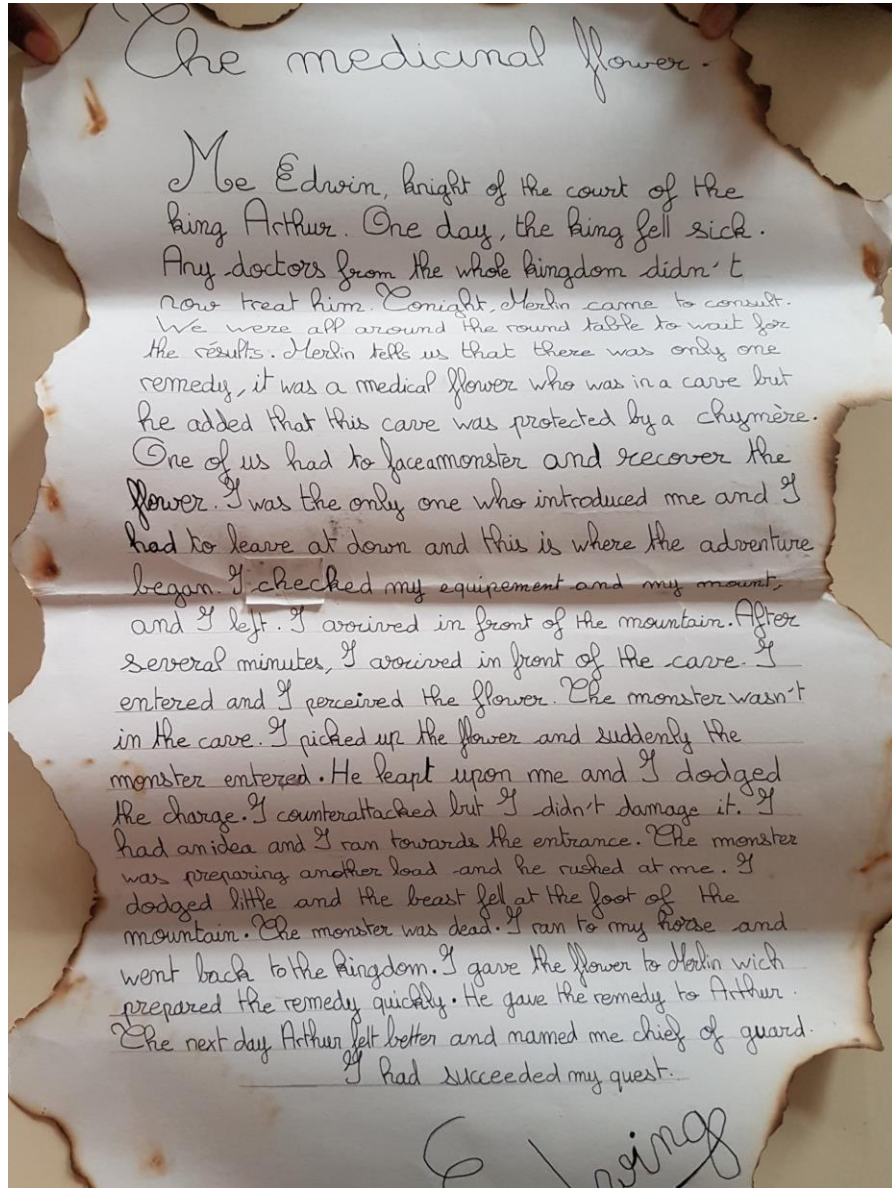 The medicinal flower.
Me Edwin, knight of the court of the
king Arthur. One day, the king fell sick.
Any doctors from the whole kingdom didn't
now treat him. Tonight, Merlin came to consult.
We were all around the round table to wait for
the résults. Merlin tells us that there was only one
remedy, it was a medical flower who was in a cave but
he added that this cave was protected by a chymère.
One of us had to face a monster and recover the
flower. I was the only one who introduced me and I
had to leave at down and this is where the adventure
began. I checked my equipement and my mount,
and I left. I arrived in front of the mountain. After
several minutes, I arrived in front of the cave. I
entered and I perceived the flower. The monster wasn't
in the cave. I picked up the flower and suddenly the
monster entered. He leapt upon me and I dodged
the charge. I counterattacked but I didn't damage it. I
had an idea and I ran towards the entrance. The monster
was preparing another load and he rushed at me. I
dodged little and the beast fell at the foot of the
mountain. The monster was dead. I ran to my horse and
went back to the kingdom. I gave the flower to Merlin wich
prepared the remedy quickly. He gave the remedy to Arthur.
The next day Arthur felt better and named me chief of guard.
I had succeeded my quest.